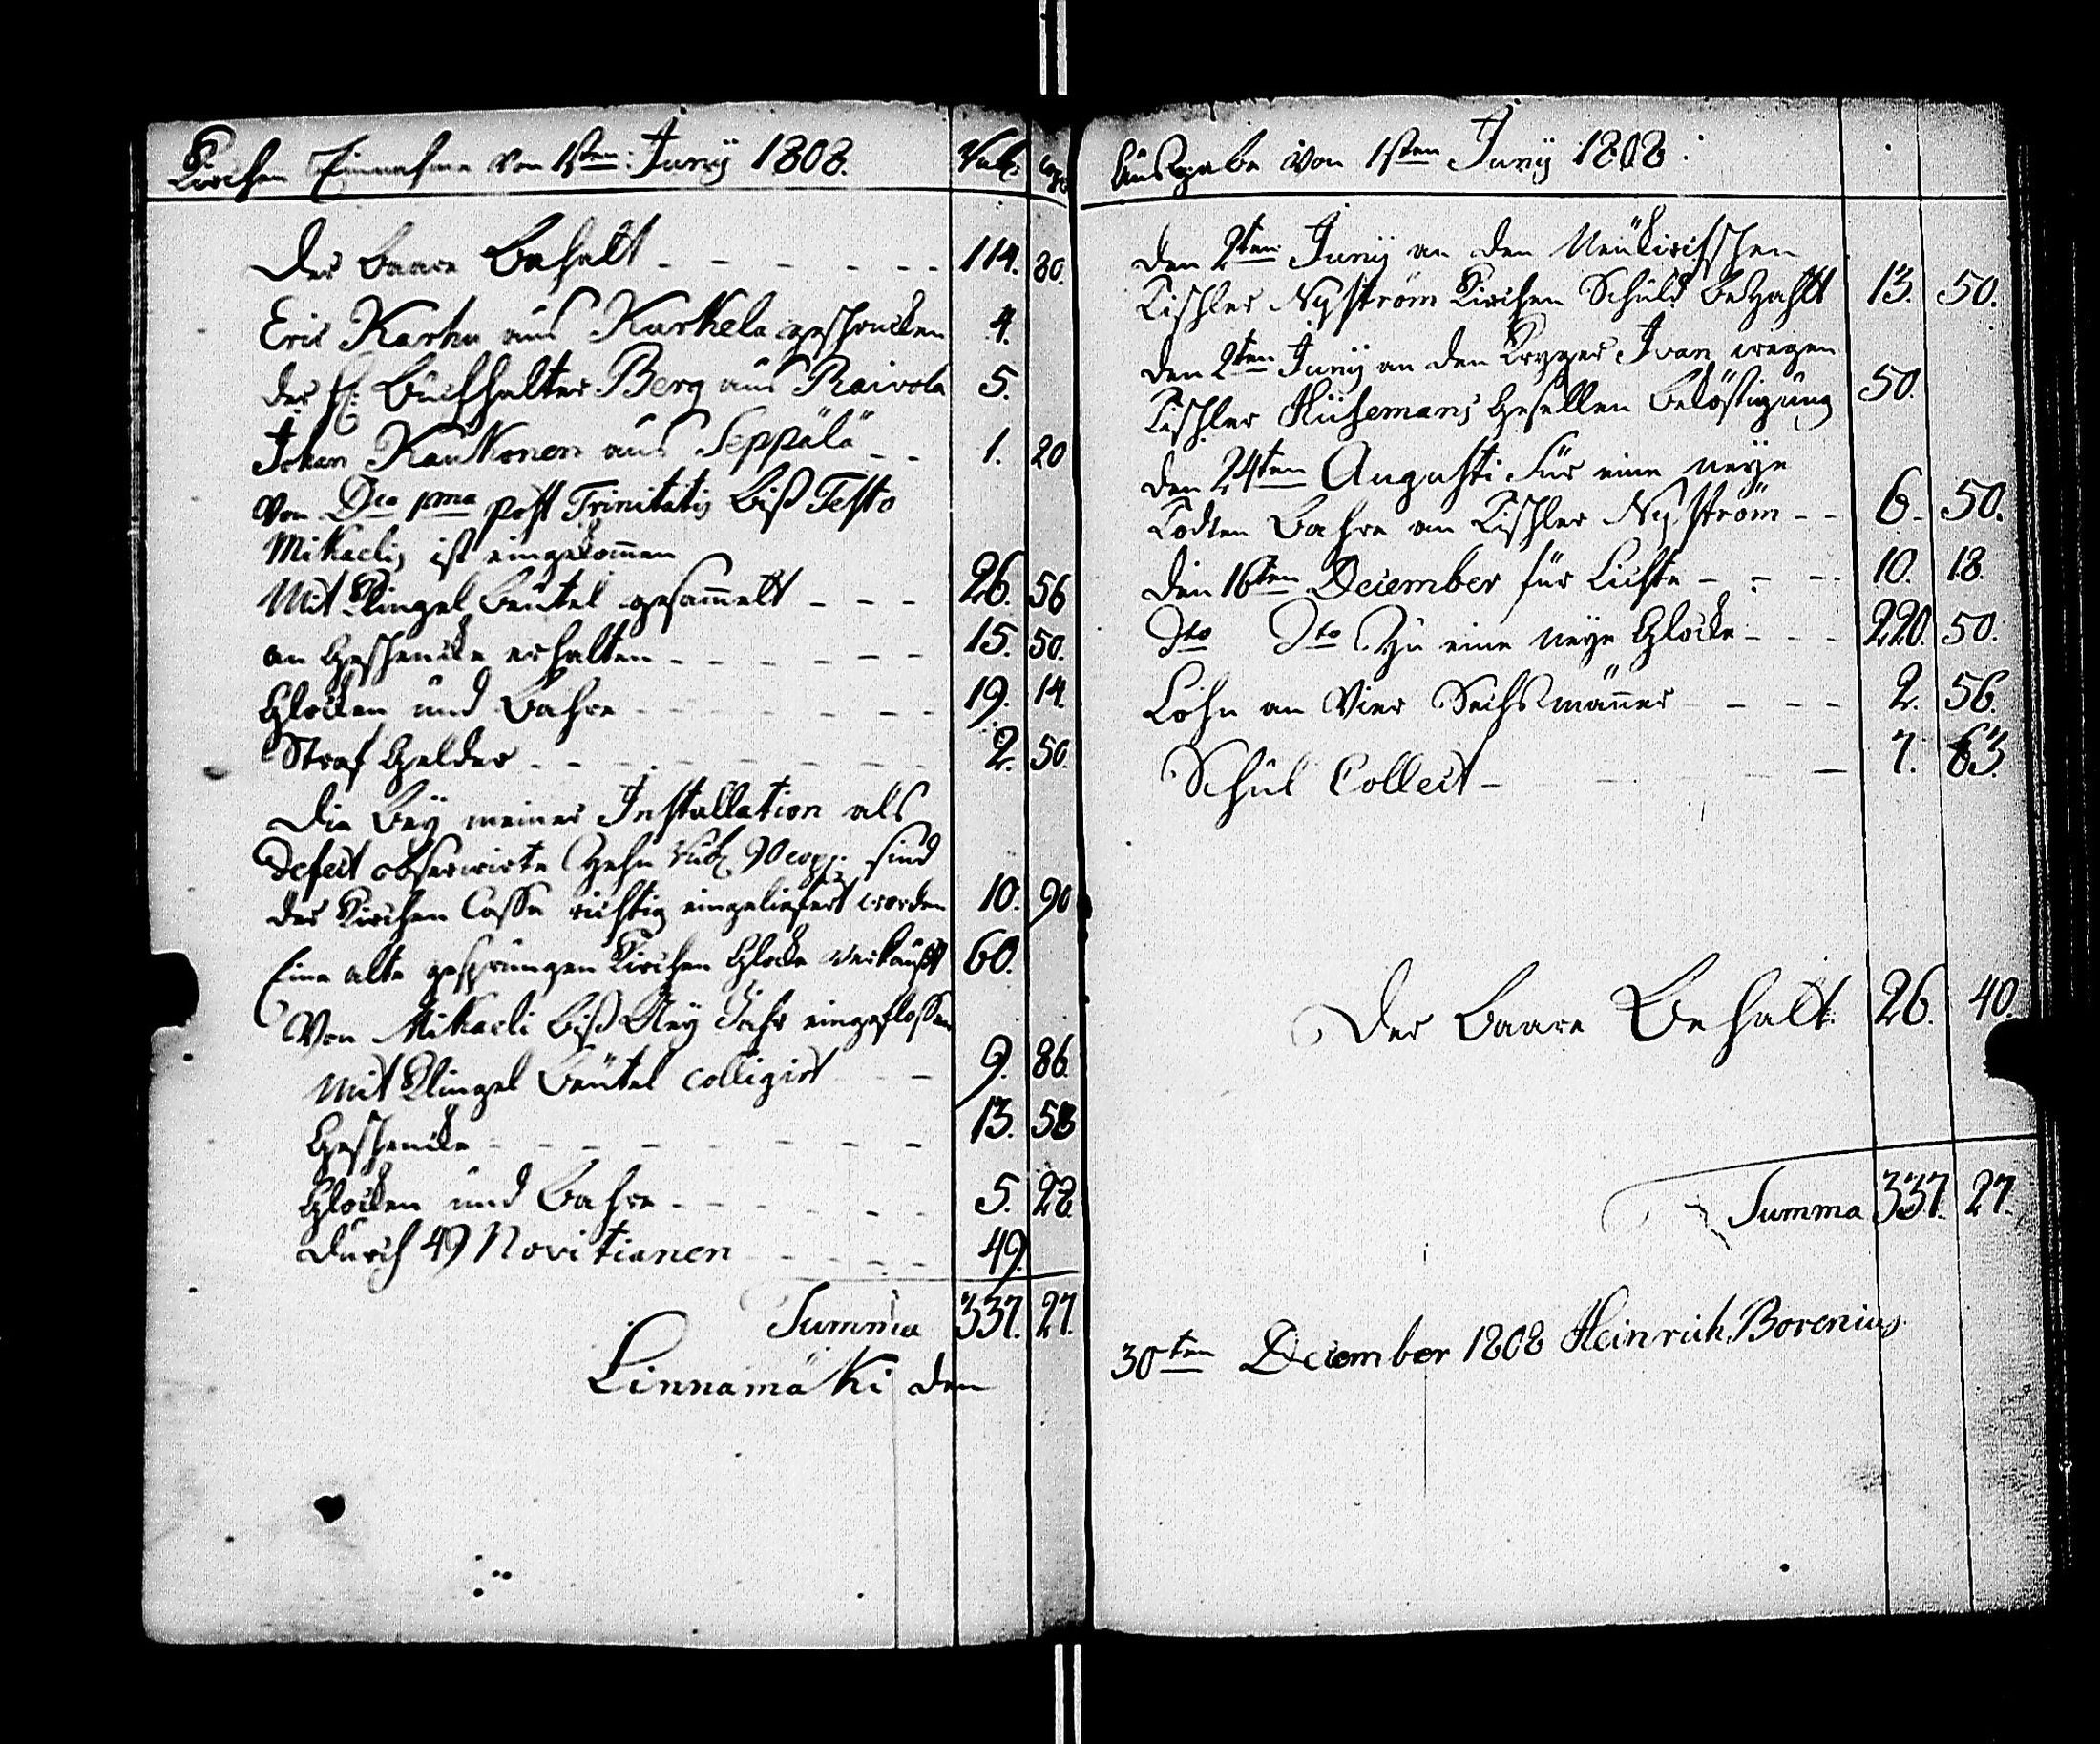 Kirchen Einnahme von 1sten Junÿ 1808. Rub. cop.
Der baare Behalt - - - - - - 114. 80.
Eric Karhu aus Kurkela geschencken 4.
der H: Buchhalter Berg aus Raivola 5.
Johan Kaukonen aus Seppälä - - 1. 20
Von Dca 1ma post Trinitatis biß Festo
Mikaelis ist eingekom̄en
Mit Klingel beütel gesam̄elt - - - 26. 56
an Geschencke erhalten - - - - - - 15. 50.
Glocken und Bahre - - - - - - - 19. 14.
Straf Gelder - - - - - - - - 2. 50.
Die beÿ meiner Installation als
Defect observirte Zehn Rub. 90 cop. sind
der Kirchen Cassa richtig eingeliefert worden 10. 90
Eine alte gesprungen Kirchen Glocke verkauft 60.
Von Mikaeli biß Neÿ Jahr eingeflossen
Mit Klingel beütel colligirt - - 9. 86.
Geschencke - - - - - - - - 13. 53
Glocken und Bahre - - - - - - 5. 28.
durch 49 Novitianen - - - - 49.
Summa 337. 27.
Linnamäki den
Ausgabe von 1sten Junÿ 1808.
den 2ten Junÿ an den Neükirchschen
Tischler Nyström Kirchen Schuld bezahlt 13. 50.
den 2ten Junÿ an den Ivan wegen
Tischler Gesellen beköstigung 50.
den 24ten Augusti für eine neye
Todten Bahre an Tischler Nyström - - 6. 50.
den 16ten December für Lichte - - - 10. 18.
Dto Dto Zu eine neye Glocke - - - 220. 50.
Lohn an Vier Sechsmän̄er - - - - 2. 56.
Schul Collect - - - 7. 63.
Der baare Behalt 26. 40.
Summa 337. 27.
30ten December 1808 Heinrich Borenius